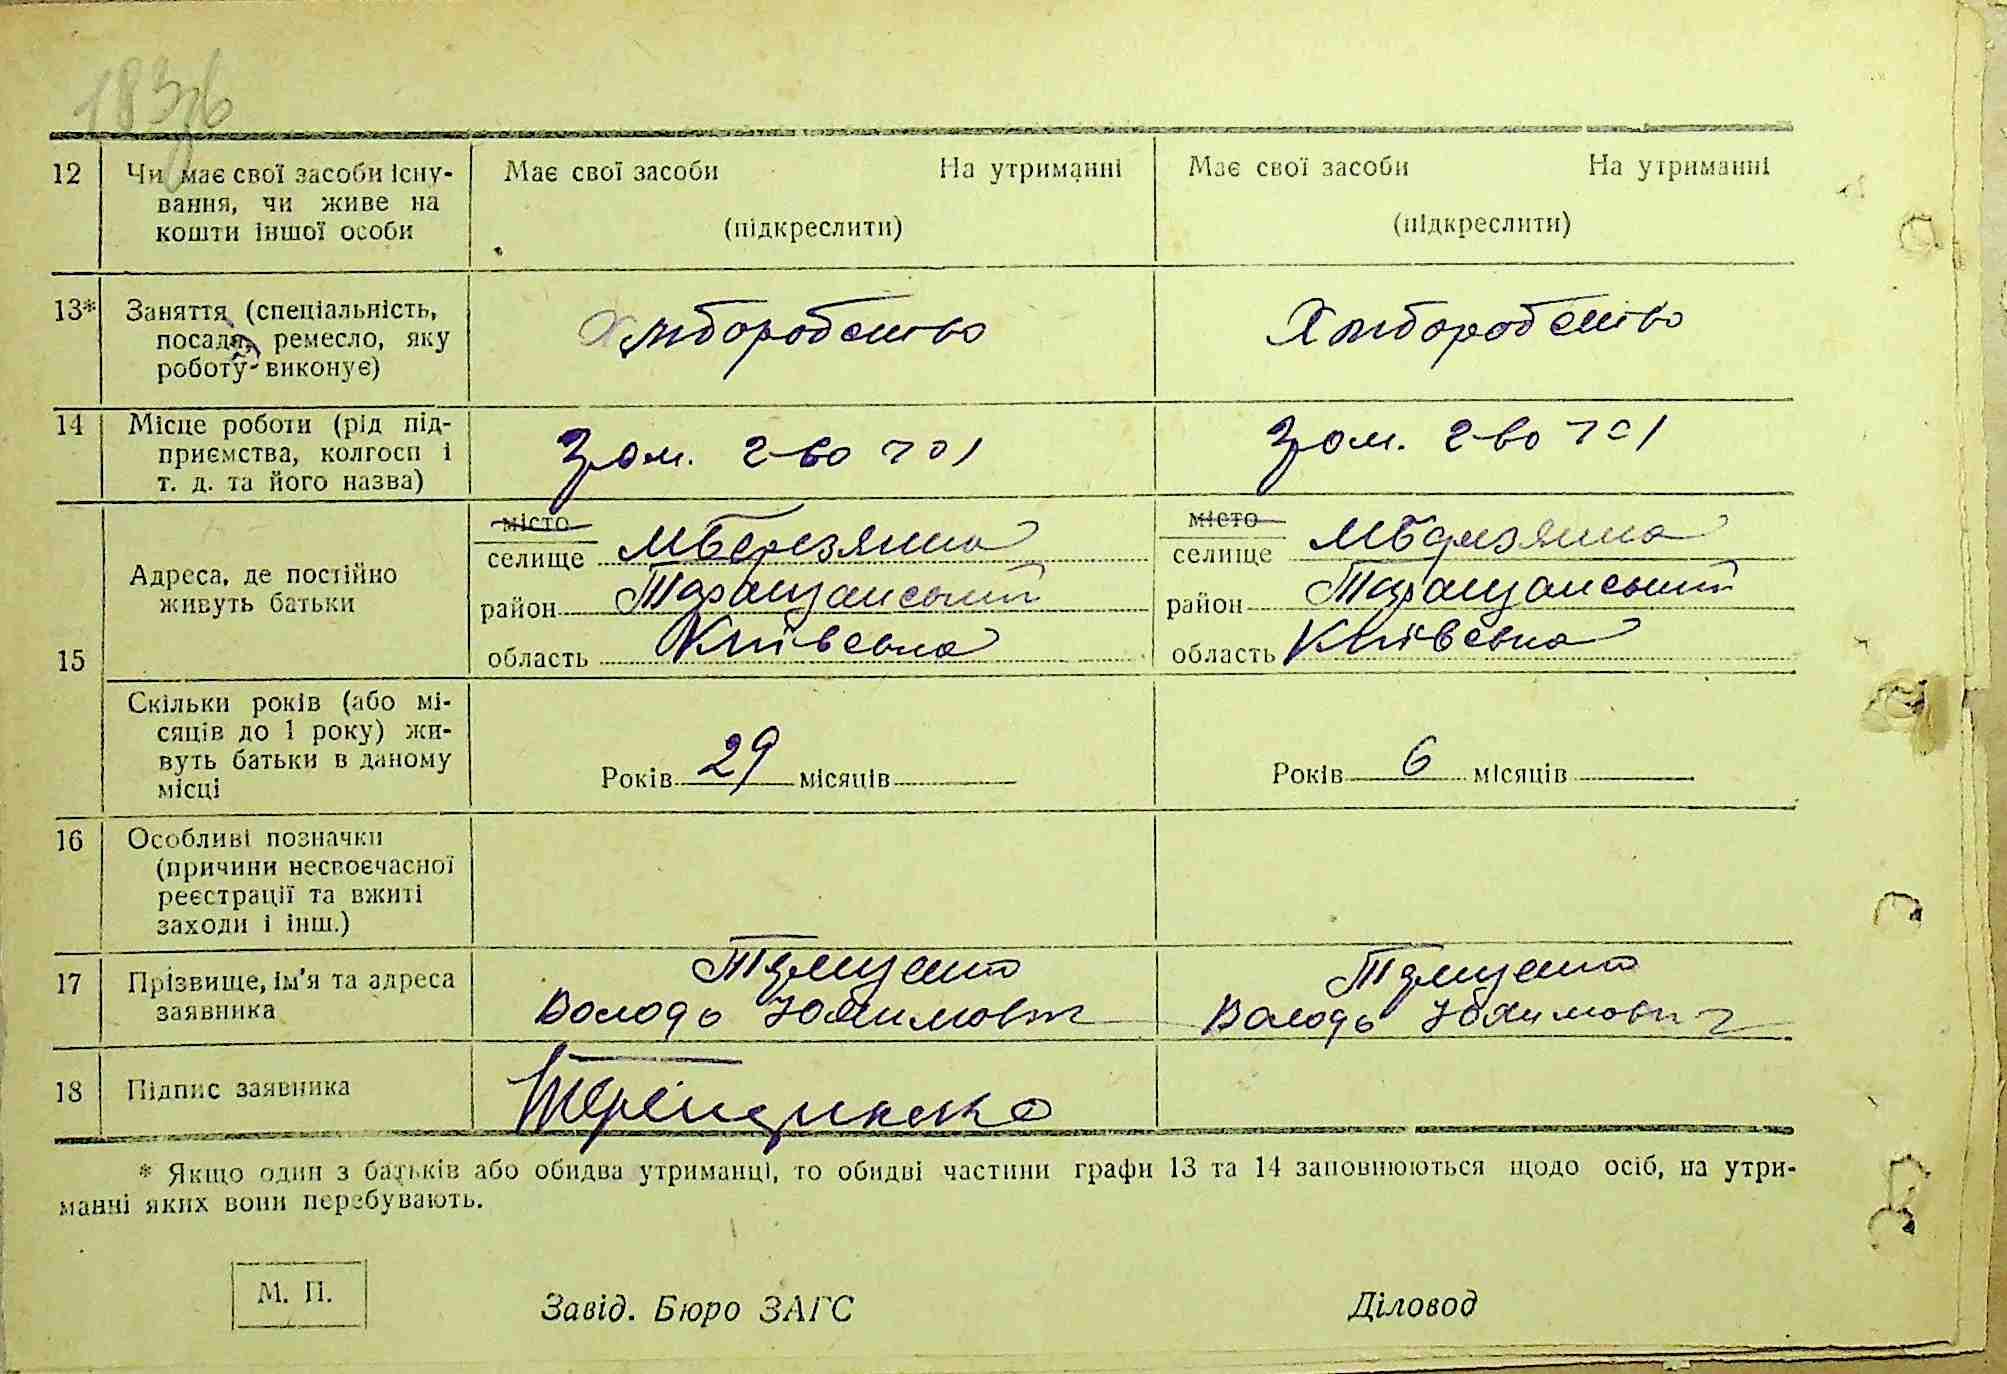 183
12 Чи має свої засоби існу-
вання, чи живе на
кошти іншої особи
Має свої засоби На утриманні
(підкреслити)
Має свої засоби На утриманні
(підкреслити)
13* Заняття (спеціальність,
посада, ремесло, яку
роботу виконує)
Хліборобство
Хліборобство
14 Місце роботи (рід під-
приємства, колгосп і
т. д. та його назва)
Гром. г-во ч 1
Гром. г-во ч 1
15
Адреса, де постійно
живуть батьки
місто
селище МБерезянка
район Таращанський
область Київська
місто
селище МБерезянка
район Таращанський
область Київська
Скільки років (або мі-
сяців до 1 року) жи-
вуть батьки в даному
місці
Років 29 місяців
Років 6 місяців
16 Особливі позначки
(причини несвоєчасної
реєстрації та вжиті
заходи і інш.)
17 Прізвище, ім'я та адреса
заявника
Володь Юхимович
Володь Юхимович
18 Підпис заявника
* Якщо один з батьків або обидва утриманці, то обидві частини графи 13 та 14 заповнюються щодо осіб, на утри-
манні яких вони перебувають.
М. П.
Завід. Бюро ЗАГС
Діловод